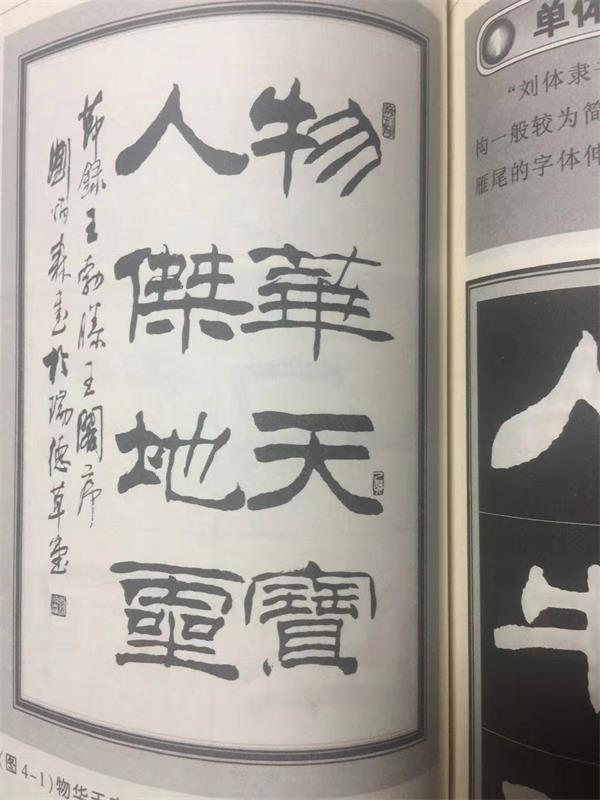 物華天寶
人傑地靈
節錄王勃滕王閣序
劉炳森書於瑞德草堂
(图4-1)物华天
单体
“刘体隶书
构一般较为简
雁尾的字体伸